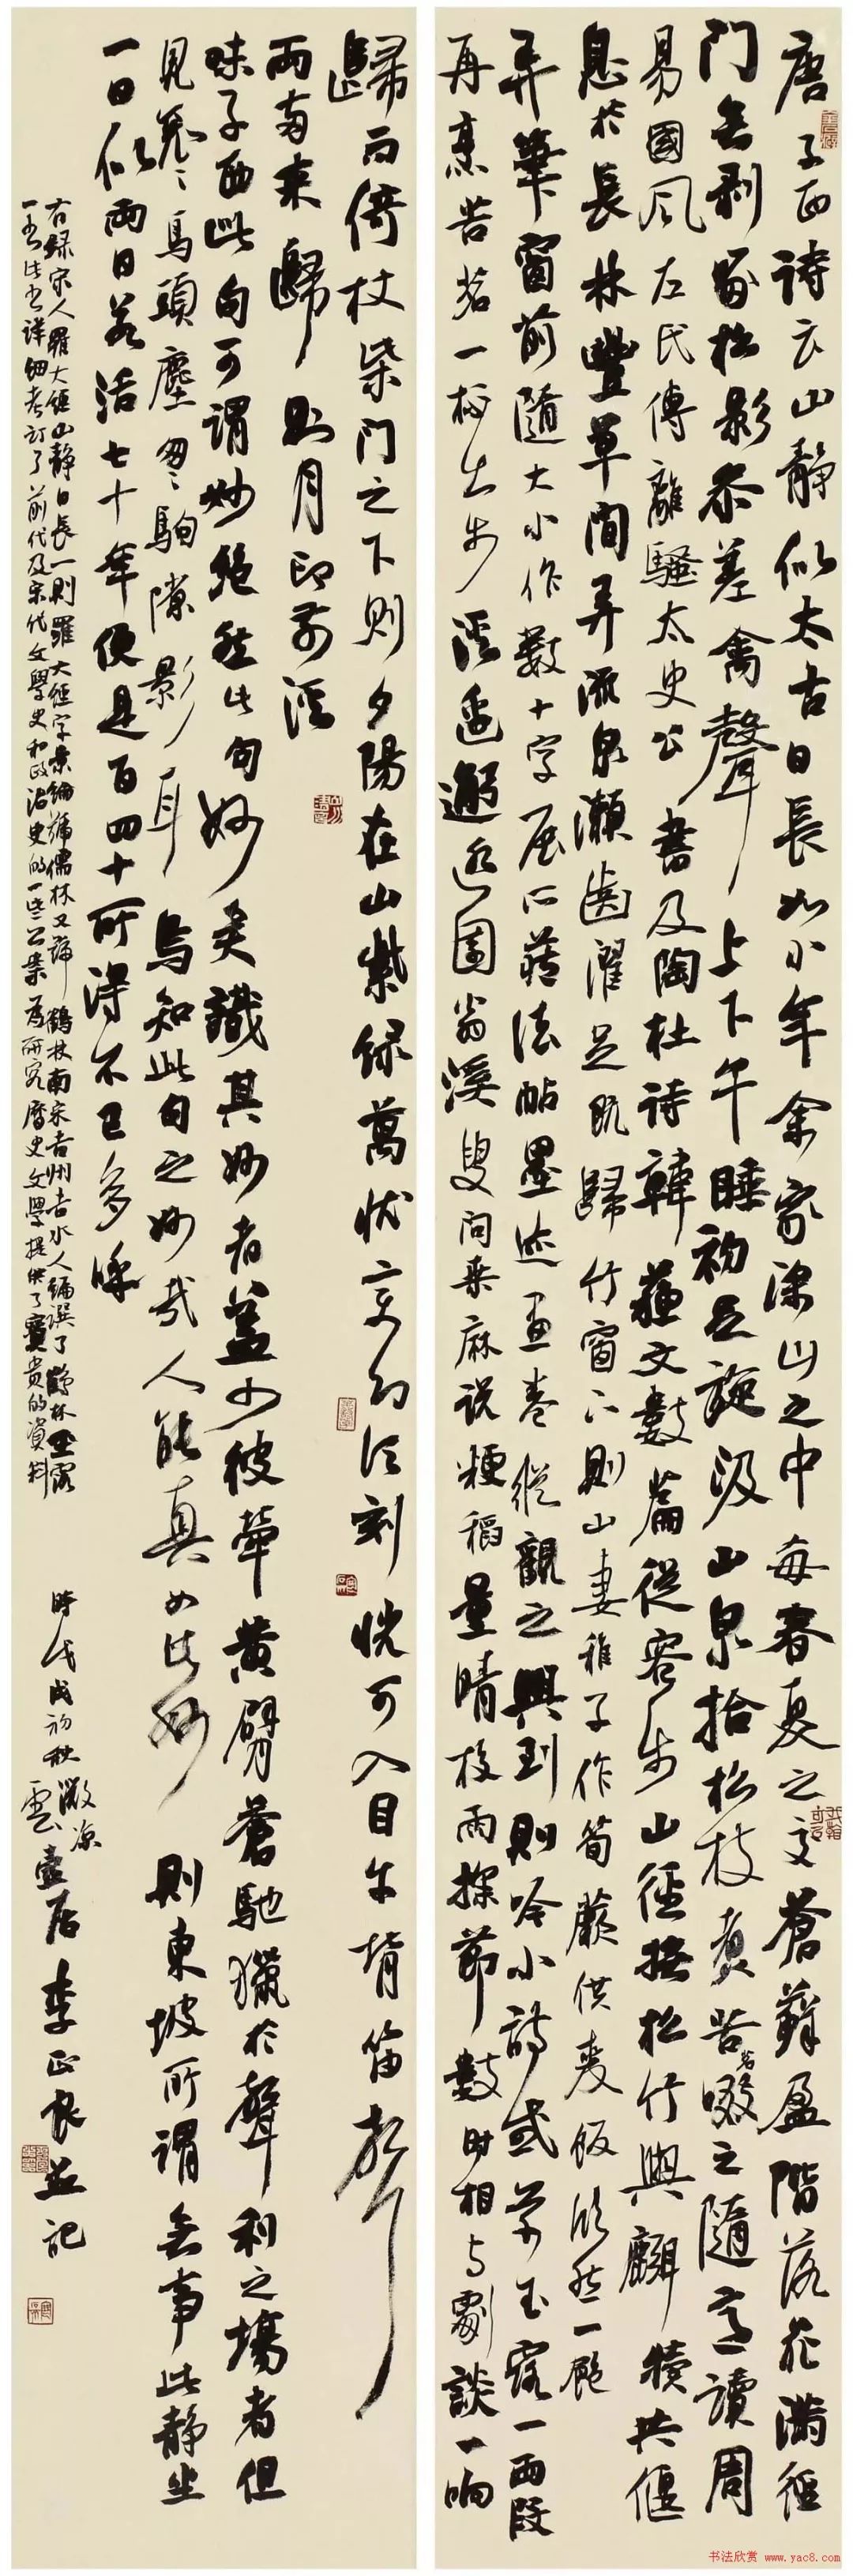 唐子西詩云山靜似太古日長如小年余家深山之中每春夏之交蒼蘚盈階落花滿徑
門無剥啄松影参差禽聲上下午睡初足旋汲山泉拾松枝煮苦茗啜之隨意讀周
易國風左氏傳離騷太史公書及陶杜詩韓蘇文數篇從容步山徑撫松竹與麛犢共偃
息於長林豐草間弄流泉漱齒濯足既歸竹窗下則山妻稚子作筍蕨供麦飯欣然一飽
弄筆窗前隨大小作數十字展所藏法帖墨迹畫卷縱觀之興到則吟小詩或草玉露一兩段
再烹苦茗一杯出步溪邊邂逅園翁溪叟問桑麻説粳稻量晴校雨探節數時相与劇談一晌
歸而倚杖柴门之下則夕陽在山紫绿萬狀变幻頃刻恍可入目牛背笛聲
兩兩来歸則月印前溪
味子西此句可謂妙絶然此句妙矣識其妙者蓋少彼牽黄臂蒼馳獵於聲利之場者但
見衮衮馬頭塵匆匆駒隙影耳烏知此句之妙哉人能真如此妙則東坡所謂無事此靜坐
一日似兩日若活七十年便是百四十所得不已多乎
右録宋人羅大經山静日長一則羅大經字景綸號儒林又號鶴林南宋吉州吉水人編撰了鶴林玉露
一書此書詳細考訂了前代及宋代文學史和政治史的一些公案為研究曆史文學提供了寶贵的資料
時戊戌初秋微凉
雲壺居李正良并記
书法欣赏 www.yac8.com